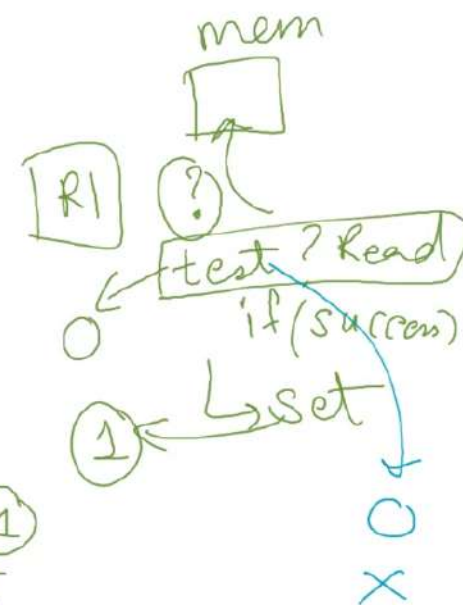 mem
R1
?
test ? Read
0
if (success)
↳ set
1
1
0
X